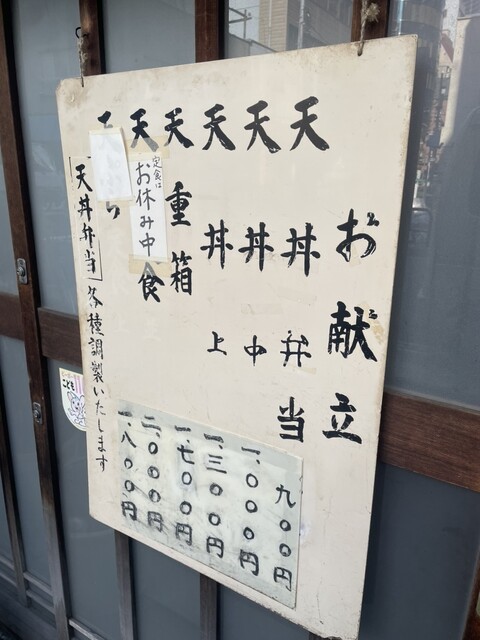 お献立
天丼弁当 九〇〇円
天丼中 一、〇〇〇円
天丼上 一、三〇〇円
天重箱 一、七〇〇円
天 食 二、〇〇〇円
定食は
お休み中
ら 一、八〇〇円
天丼弁当 各種調製いたします
こども